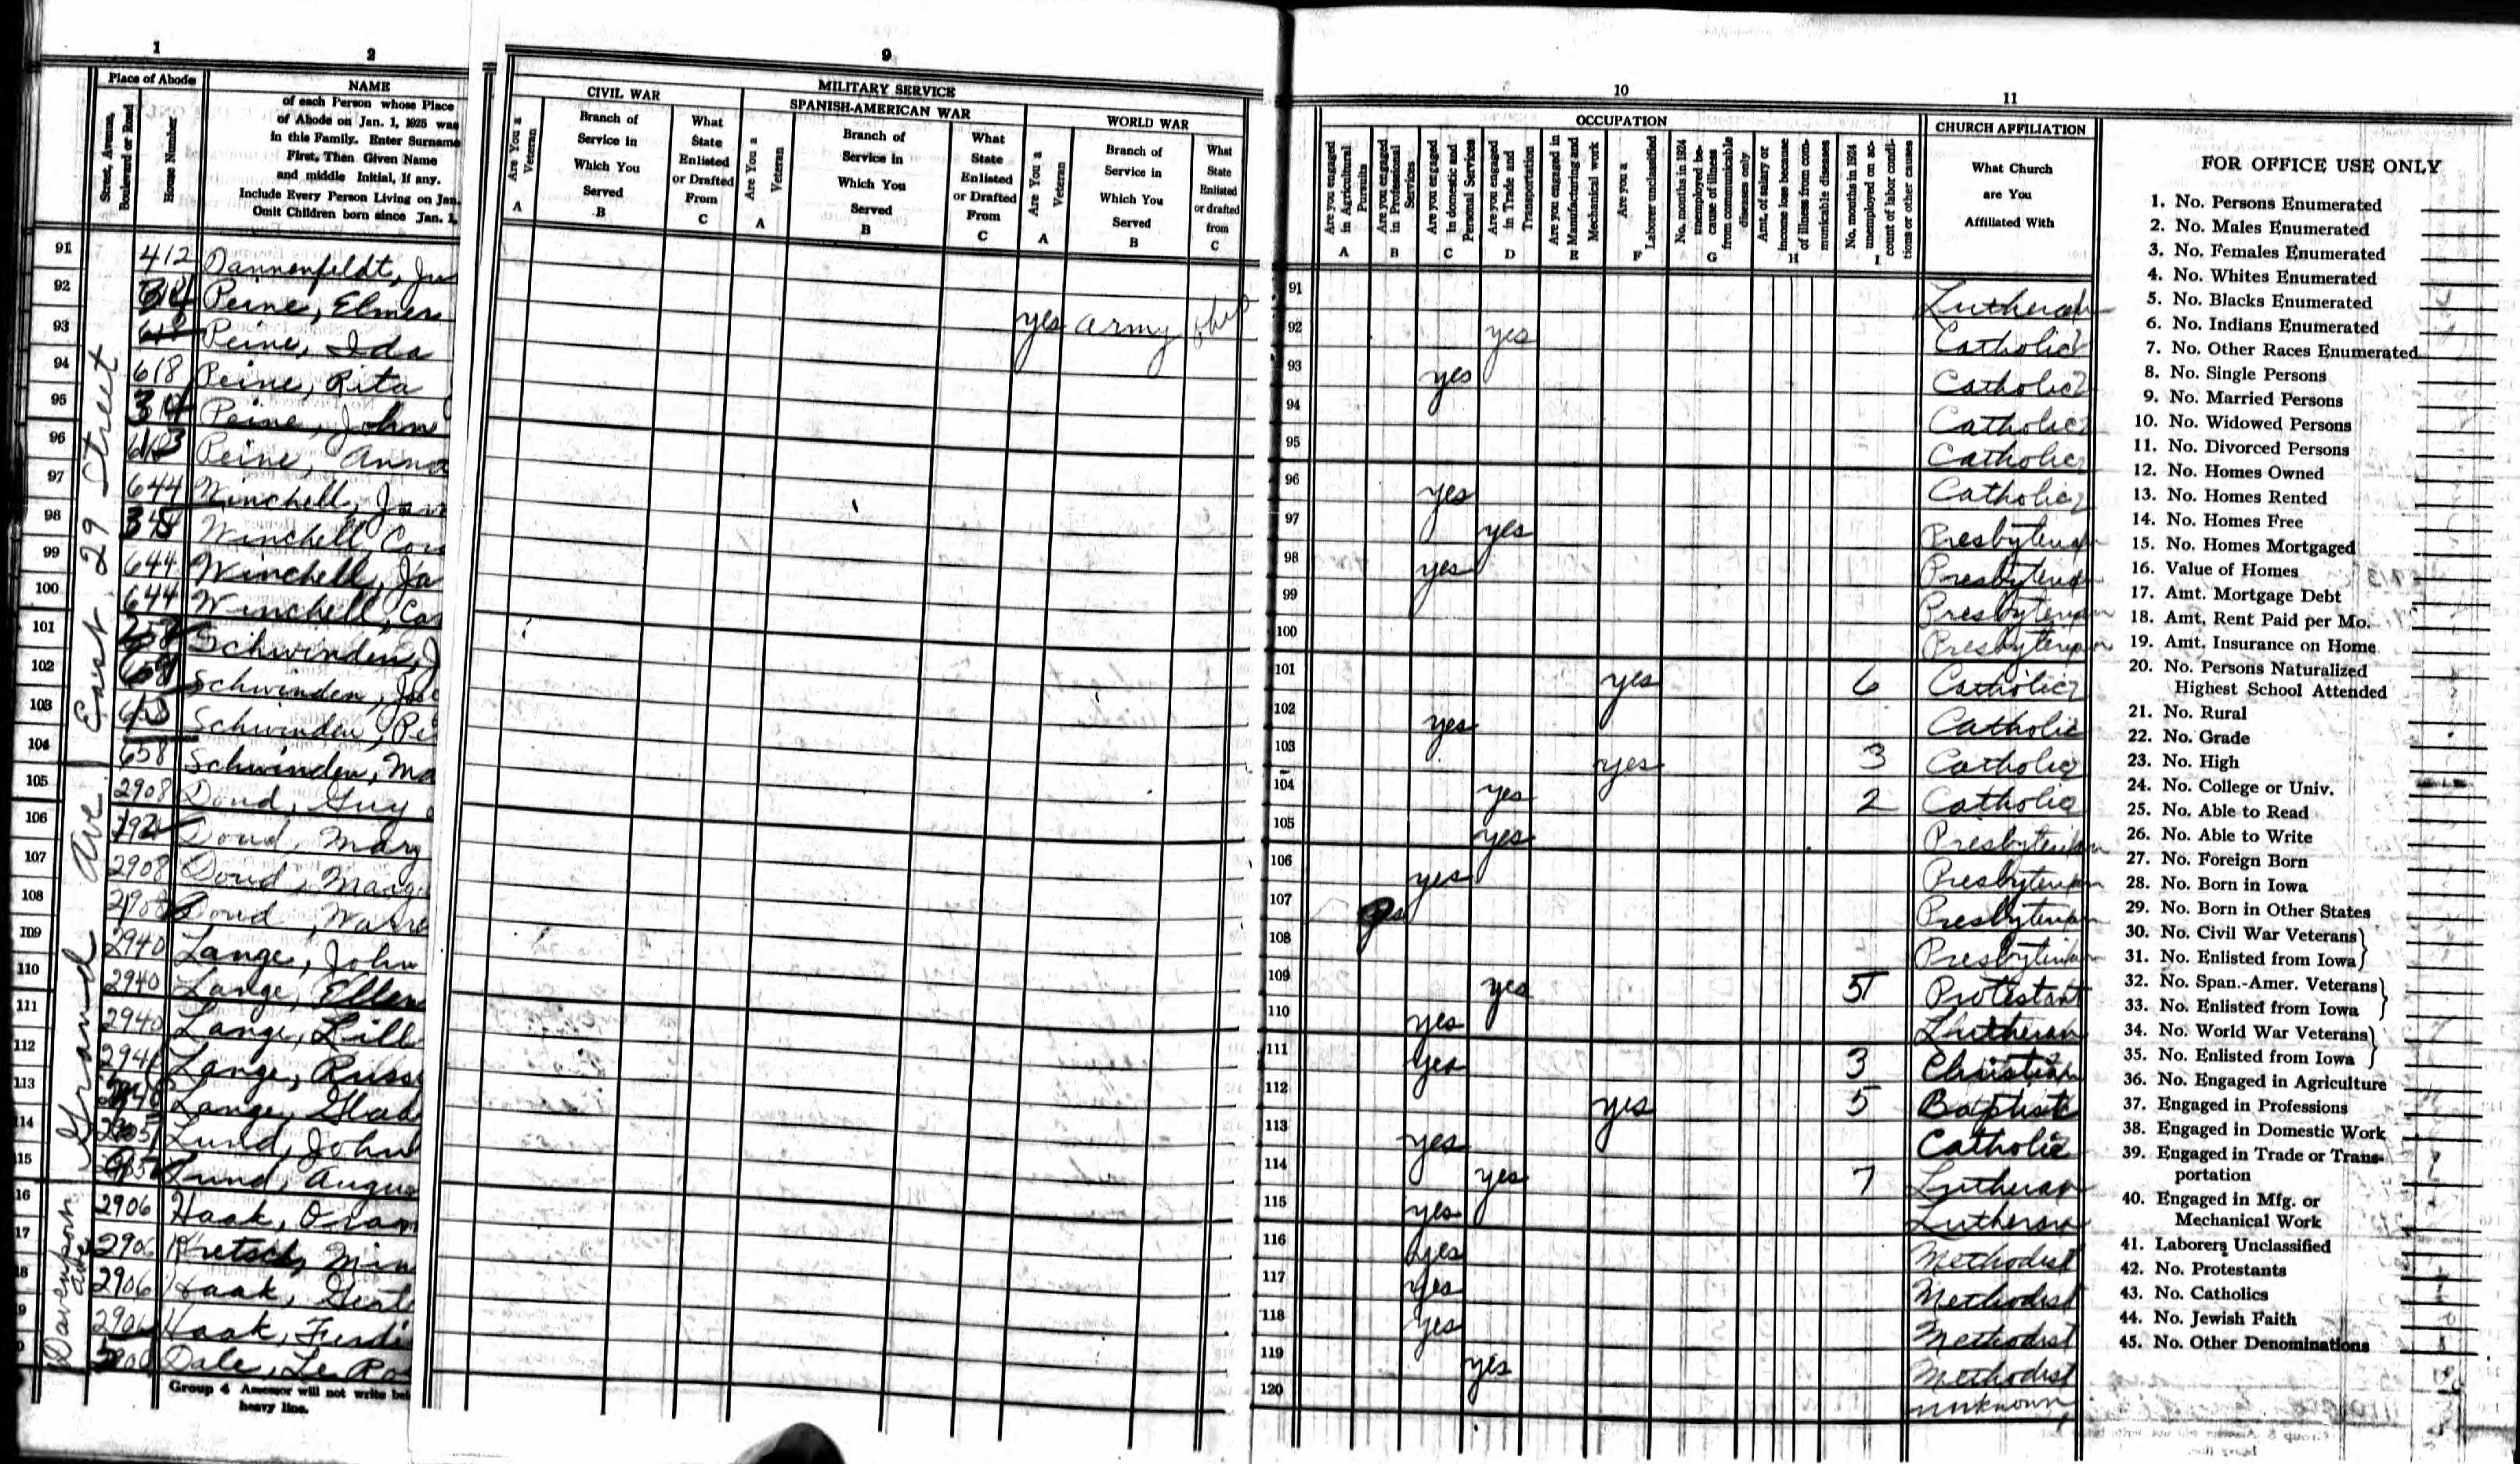 1
2
9
10
11
Place of Abode
Street, Avenue, Boulevard or Road
House Number
NAME
of each Person whose Place
of Abode on Jan. 1, 1925 was
in this Family. Enter Surname
First, Then Given Name
and middle Initial, if any.
Include Every Person Living on Jan.
Omit Children born since Jan. 1,
MILITARY SERVICE
CIVIL WAR
Are You a Veteran
A
Branch of Service in Which You Served
B
What State Enlisted or Drafted From
C
SPANISH-AMERICAN WAR
Are You a Veteran
A
Branch of Service in Which You Served
B
What State Enlisted or Drafted From
C
WORLD WAR
Are You a Veteran
A
Branch of Service in Which You Served
B
What State Enlisted or drafted from
C
OCCUPATION
Are you engaged in Agricultural Pursuits
A
Are you engaged in Professional Services
B
Are you engaged in domestic and Personal Services
C
Are you engaged in Trade and Transportation
D
Are you engaged in Manufacturing and Mechanical work
E
Are you a Laborer unclassified
F
No. months in 1924 unemployed because of illness from communicable diseases only
G
Amt. of salary or income loss because of illness from communicable diseases
H
No. months in 1924 unemployed on account of labor conditions or other causes
I
CHURCH AFFILIATION
What Church
are You
Affiliated With
East 29 Street
Grand Ave
Davenport Ave
91 412 Dannenfeldt, 91 Lutheran
92 Peine, Elmer yes army 92 yes Catholic
93 Peine, Ida 93 yes Catholic
94 618 Peine, Rita 94 Catholic
95 Peine, John 95 Catholic
96 Peine, Anna 96 yes Catholic
97 644 Winchell, 97 yes Presbyterian
98 Winchell 98 yes Presbyterian
99 644 Winchell, Ja 99 Presbyterian
100 644 Winchell, 100 Presbyterian
101 Schwinden, 101 yes 6 Catholic
102 Schwinden, 102 yes Catholic
103 Schwinden, 103 yes 3 Catholic
104 658 Schwinden, Ma 104 yes 2 Catholic
105 2908 Doud, Guy 105 yes Presbyterian
106 Doud, Mary 106 yes Presbyterian
107 2908 Doud, Marg 107 yes Presbyterian
108 2908 Doud, Warre 108 Presbyterian
109 2940 Lange, John 109 yes 5 Protestant
110 2940 Lange, Ellen 110 yes Lutheran
111 2940 Lange, Lill 111 yes 3 Christian
112 2940 Lange, Russ 112 yes 5 Baptist
113 Lange, Glad 113 yes Catholic
114 Lund, John 114 yes 7 Lutheran
115 Lund, Augus 115 yes Lutheran
116 2906 Haak, 116 yes Methodist
117 2906 Kretsch, Min 117 yes Methodist
118 2906 Haak, Gert 118 yes Methodist
2906 Haak, Ferdi 119 yes Methodist
Dale, Le Ro 120 unknown
Group 4 Assessor will not write bel
heavy line.
FOR OFFICE USE ONLY
1. No. Persons Enumerated
2. No. Males Enumerated
3. No. Females Enumerated
4. No. Whites Enumerated
5. No. Blacks Enumerated
6. No. Indians Enumerated
7. No. Other Races Enumerated
8. No. Single Persons
9. No. Married Persons
10. No. Widowed Persons
11. No. Divorced Persons
12. No. Homes Owned
13. No. Homes Rented
14. No. Homes Free
15. No. Homes Mortgaged
16. Value of Homes
17. Amt. Mortgage Debt
18. Amt. Rent Paid per Mo.
19. Amt. Insurance on Home
20. No. Persons Naturalized
Highest School Attended
21. No. Rural
22. No. Grade
23. No. High
24. No. College or Univ.
25. No. Able to Read
26. No. Able to Write
27. No. Foreign Born
28. No. Born in Iowa
29. No. Born in Other States
30. No. Civil War Veterans
31. No. Enlisted from Iowa
32. No. Span.-Amer. Veterans
33. No. Enlisted from Iowa
34. No. World War Veterans
35. No. Enlisted from Iowa
36. No. Engaged in Agriculture
37. Engaged in Professions
38. Engaged in Domestic Work
39. Engaged in Trade or Trans-
portation
40. Engaged in Mfg. or
Mechanical Work
41. Laborers Unclassified
42. No. Protestants
43. No. Catholics
44. No. Jewish Faith
45. No. Other Denominations